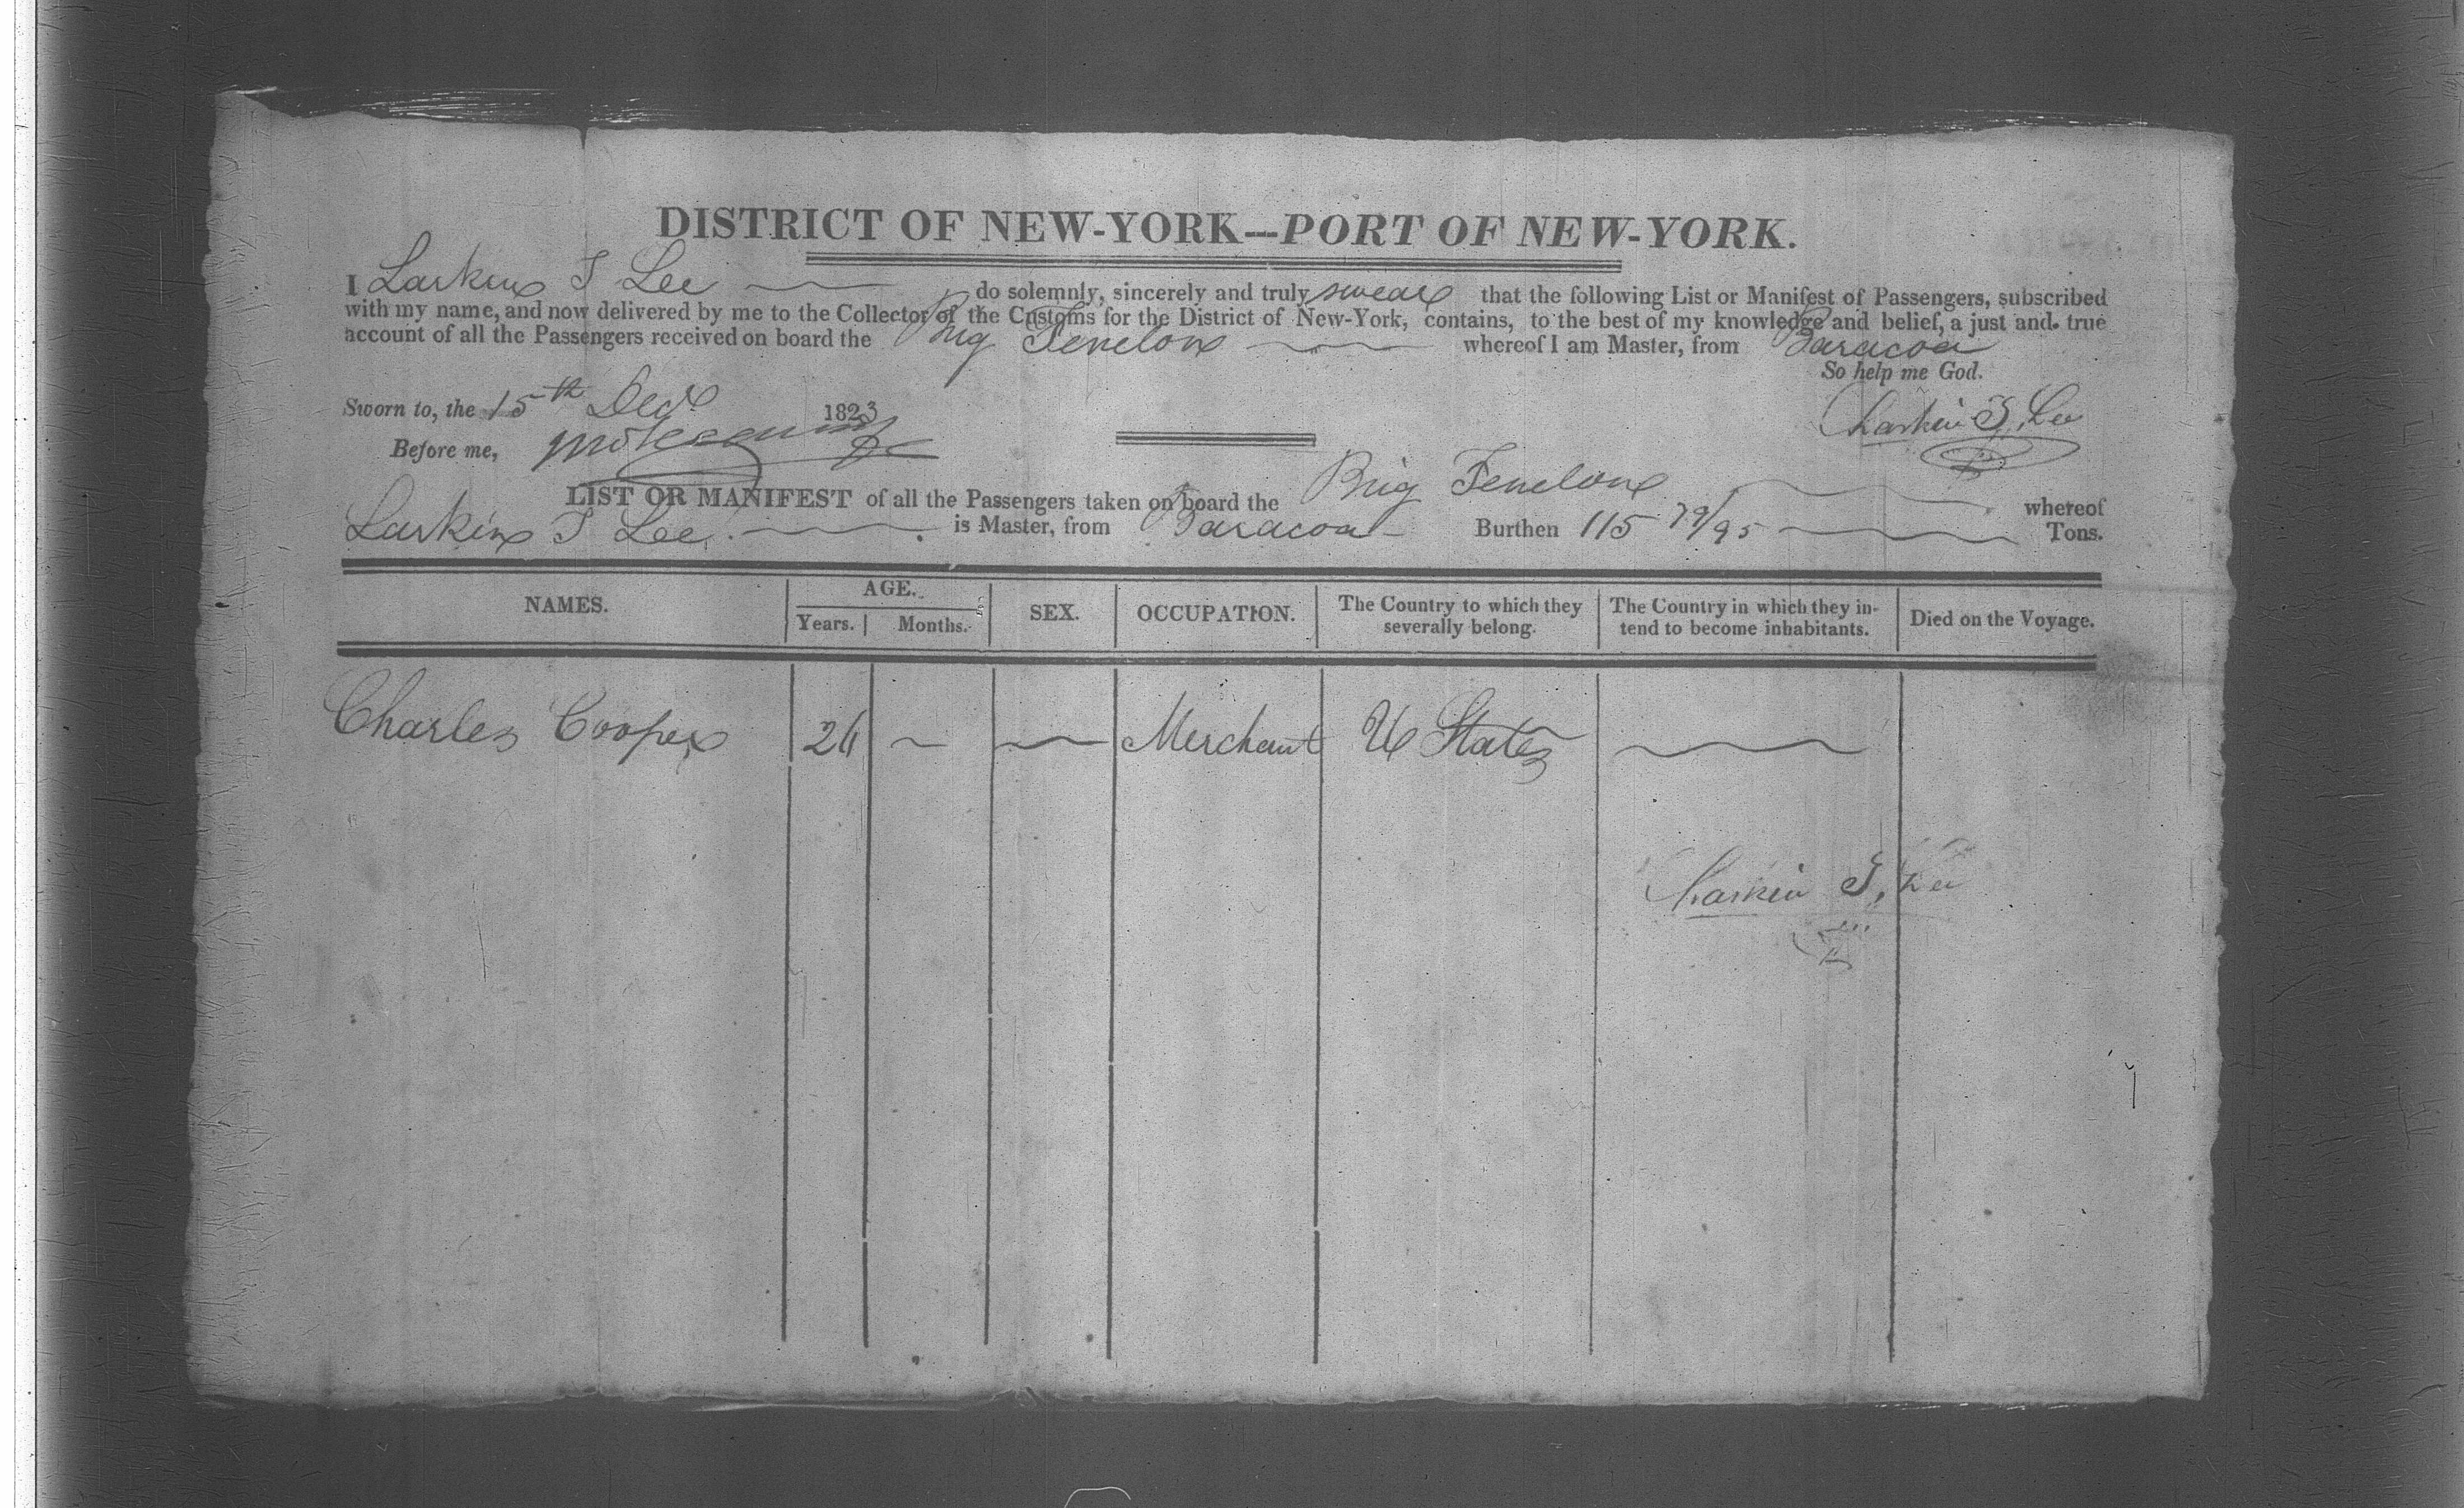 DISTRICT OF NEW-YORK—PORT OF NEW-YORK.
I Larkin T Lee do solemnly, sincerely and truly swear that the following List or Manifest of Passengers, subscribed
with my name, and now delivered by me to the Collector of the Customs for the District of New-York, contains, to the best of my knowledge and belief, a just and true
account of all the Passengers received on board the Brig Fenelon whereof I am Master, from Baracoa
So help me God.
Sworn to, the 15th Decr 1823
Larkin T. Lee
Before me,
LIST OR MANIFEST of all the Passengers taken on board the Brig Fenelon whereof
Larkin T Lee. is Master, from Baracoa Burthen 115 79/95 Tons.
NAMES. AGE. SEX. OCCUPATION. The Country to which they severally belong. The Country in which they intend to become inhabitants. Died on the Voyage.
Years. Months.
Charles Cooper 26 Merchant U States
Larkin T. Lee